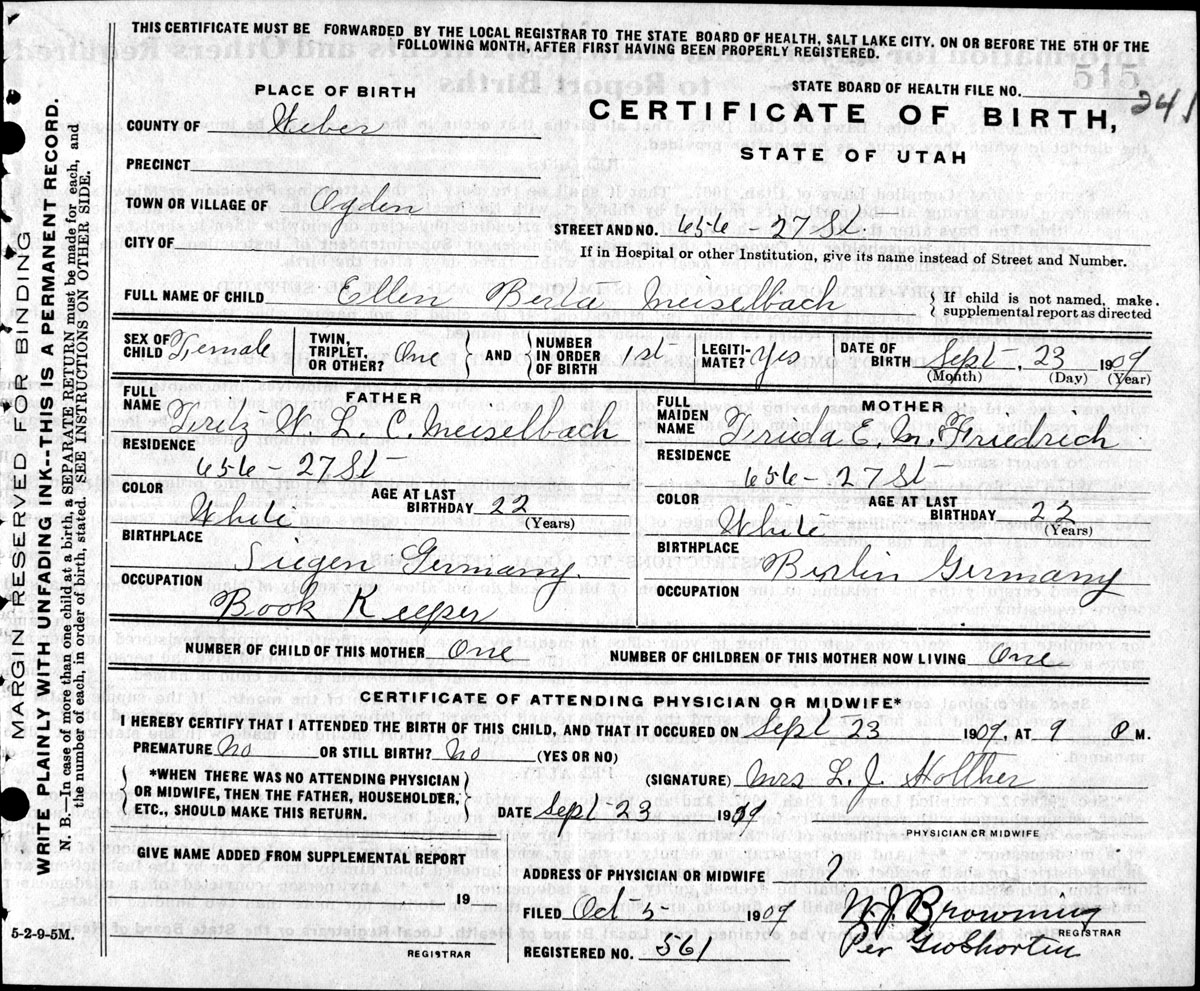 THIS CERTIFICATE MUST BE FORWARDED BY THE LOCAL REGISTRAR TO THE STATE BOARD OF HEALTH, SALT LAKE CITY, ON OR BEFORE THE 5TH OF THE
FOLLOWING MONTH, AFTER FIRST HAVING BEEN PROPERLY REGISTERED.
STATE BOARD OF HEALTH FILE NO. 241
PLACE OF BIRTH
CERTIFICATE OF BIRTH,
STATE OF UTAH
COUNTY OF Weber
PRECINCT
TOWN OR VILLAGE OF Ogden
STREET AND NO. 656 - 27 St.
CITY OF
If in Hospital or other Institution, give its name instead of Street and Number.
FULL NAME OF CHILD Ellen Berta Meiselbach
If child is not named, make
supplemental report as directed
SEX OF CHILD Female
TWIN, TRIPLET, OR OTHER? One
AND
NUMBER IN ORDER OF BIRTH 1st
LEGITIMATE? Yes
DATE OF BIRTH Sept. 23 1909
(Month) (Day) (Year)
FATHER
FULL NAME Fritz W. L. C. Meiselbach
RESIDENCE
656 - 27 St
COLOR White
AGE AT LAST BIRTHDAY 22
(Years)
BIRTHPLACE
Siegen Germany.
OCCUPATION
Book Keeper
MOTHER
FULL MAIDEN NAME Frieda E. M. Friedrich
RESIDENCE
656 - 27 St
COLOR White
AGE AT LAST BIRTHDAY 22
(Years)
BIRTHPLACE
Berlin Germany
OCCUPATION
NUMBER OF CHILD OF THIS MOTHER One
NUMBER OF CHILDREN OF THIS MOTHER NOW LIVING One
CERTIFICATE OF ATTENDING PHYSICIAN OR MIDWIFE*
I HEREBY CERTIFY THAT I ATTENDED THE BIRTH OF THIS CHILD, AND THAT IT OCCURED ON Sept 23 1909, AT 9 P M.
PREMATURE No OR STILL BIRTH? No (YES OR NO)
*WHEN THERE WAS NO ATTENDING PHYSICIAN
OR MIDWIFE, THEN THE FATHER, HOUSEHOLDER,
ETC., SHOULD MAKE THIS RETURN.
(SIGNATURE) Mrs L. J. Holther
DATE Sept 23 1909
PHYSICIAN OR MIDWIFE
GIVE NAME ADDED FROM SUPPLEMENTAL REPORT
19
REGISTRAR
ADDRESS OF PHYSICIAN OR MIDWIFE ?
FILED Oct 5 1909
W. J. Browning
REGISTRAR
REGISTERED NO. 561
Per Geo Shorten
5-2-9-5M.
MARGIN RESERVED FOR BINDING
WRITE PLAINLY WITH UNFADING INK--THIS IS A PERMANENT RECORD.
N. B.—In case of more than one child at a birth, a SEPARATE RETURN must be made for each, and
the number of each, in order of birth, stated. SEE INSTRUCTIONS ON OTHER SIDE.